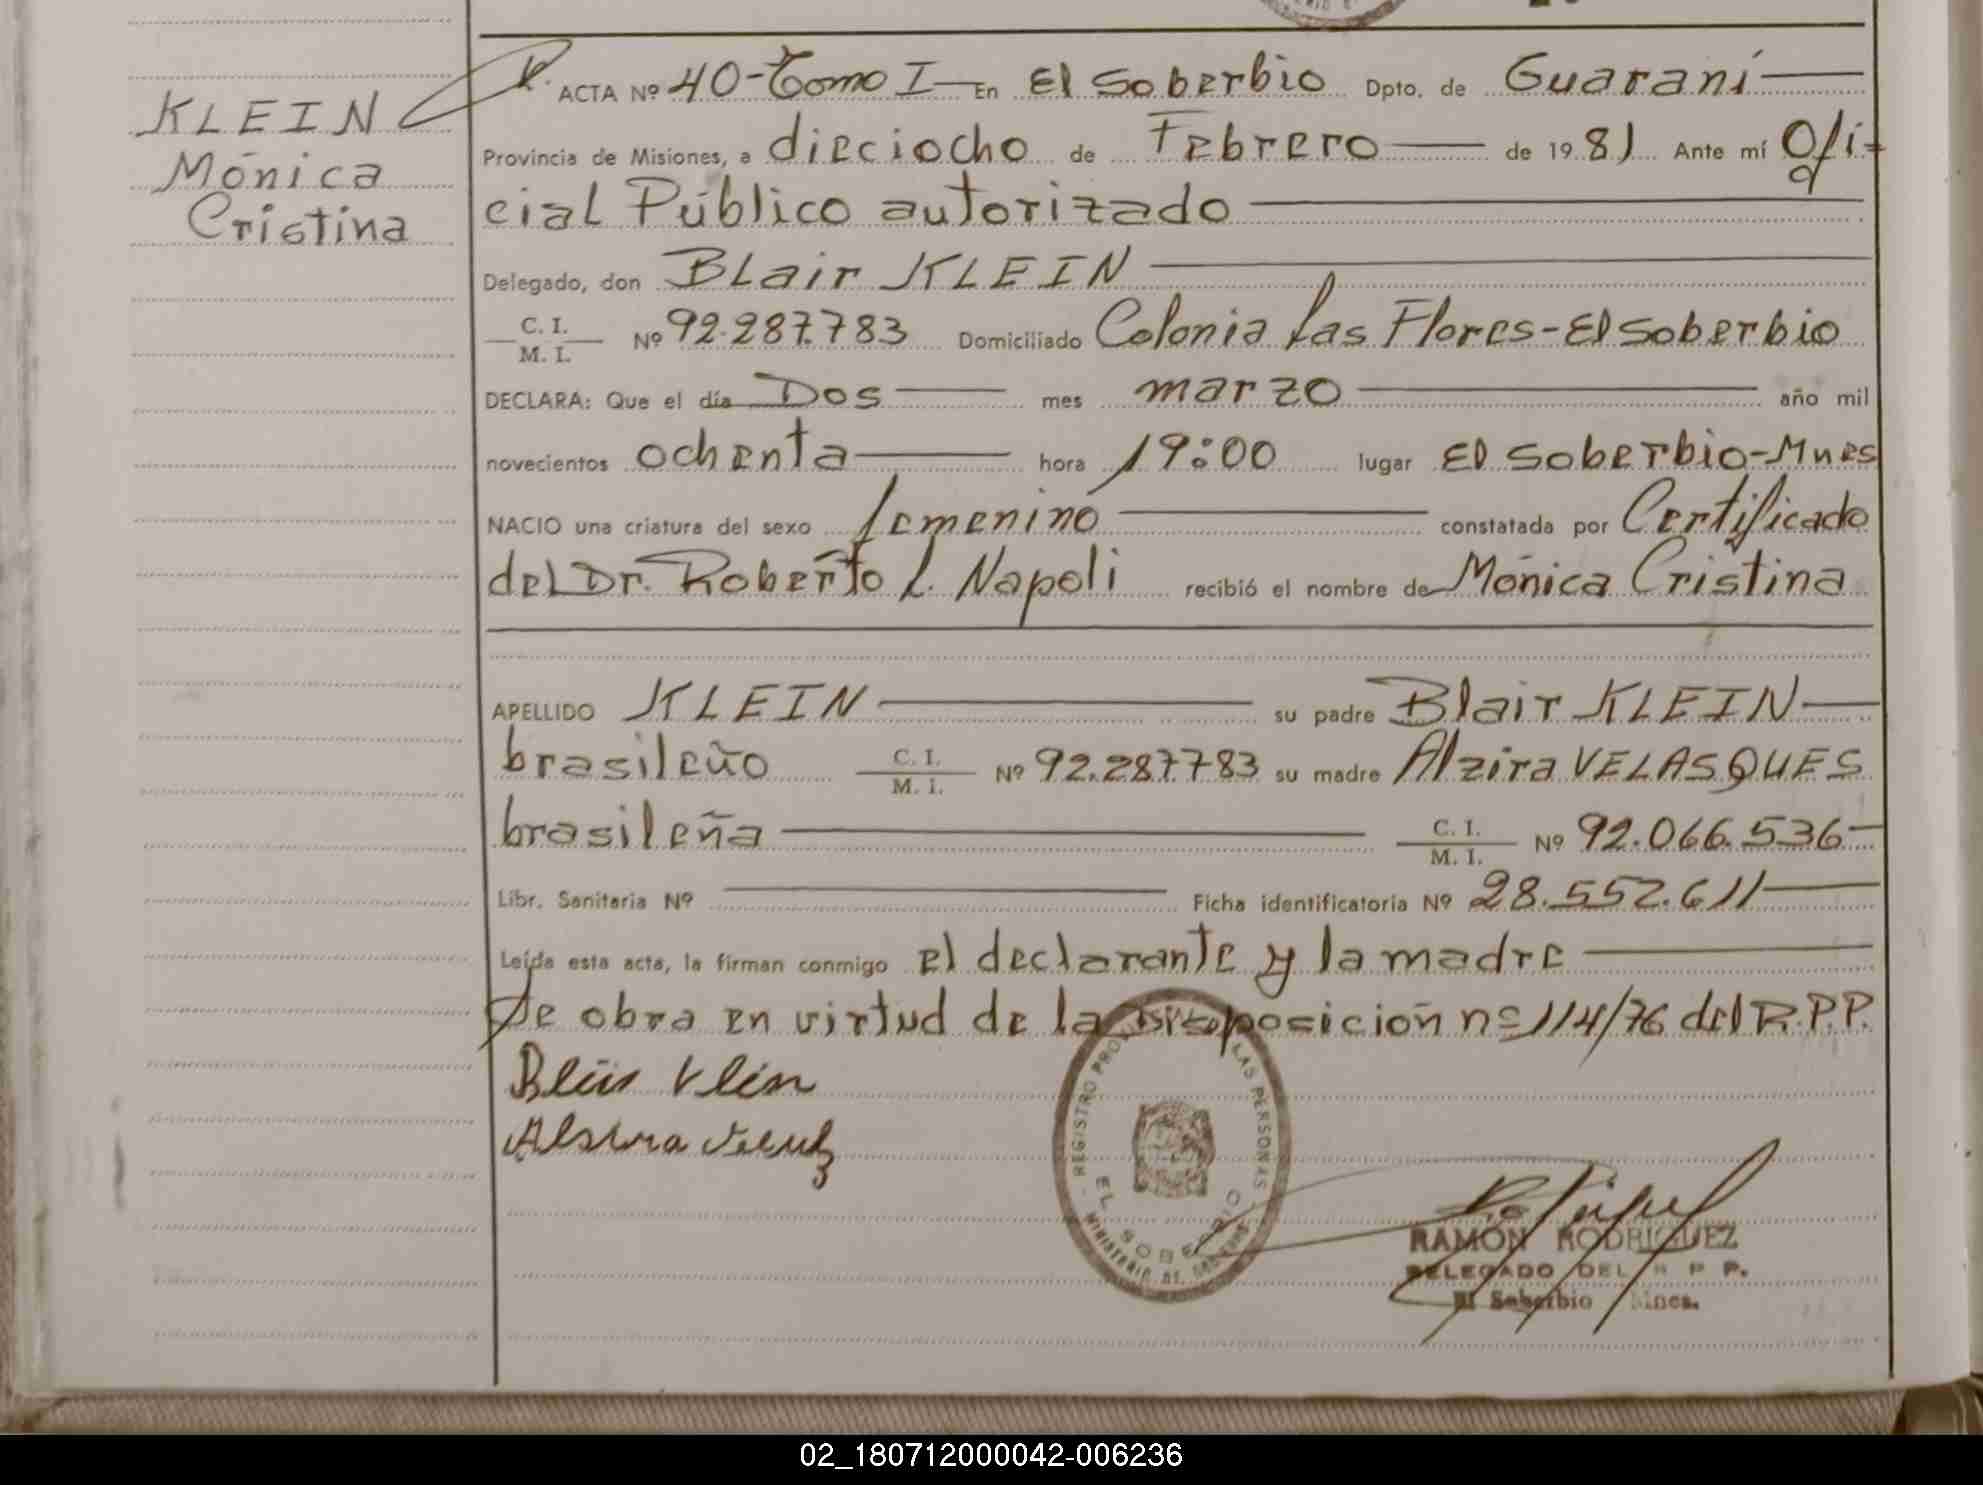 KLEIN
Mónica
Cristina
ACTA Nº 40-Tomo I En El Soberbio Dpto. de Guaraní
Provincia de Misiones, a dieciocho de Febrero de 1981 Ante mí Ofi-
cial Público autorizado
Delegado, don Blair KLEIN
C. I. / M. I. Nº 92.287.783 Domiciliado Colonia Las Flores-El Soberbio
DECLARA: Que el día Dos mes marzo año mil
novecientos ochenta hora 19:00 lugar El Soberbio-Mnes
NACIO una criatura del sexo femenino constatada por Certificado
del Dr. Roberto L. Napoli recibió el nombre de Mónica Cristina
APELLIDO KLEIN su padre Blair KLEIN
brasileño C. I. / M. I. Nº 92.287.783 su madre Alzira VELASQUES
brasileña C. I. / M. I. Nº 92.066.536
Libr. Sanitaria Nº Ficha identificatoria Nº 28.552.611
Leída esta acta, la firman conmigo el declarante y la madre
Se obra en virtud de la Disposición nº 114/76 del R.P.P.
REGISTRO LAS PERSONAS
EL SOBERBIO
MINISTERIO DE
RAMÓN RODRIGUEZ
DELEGADO DEL R P P.
El Soberbio Mnes.
02_180712000042-006236